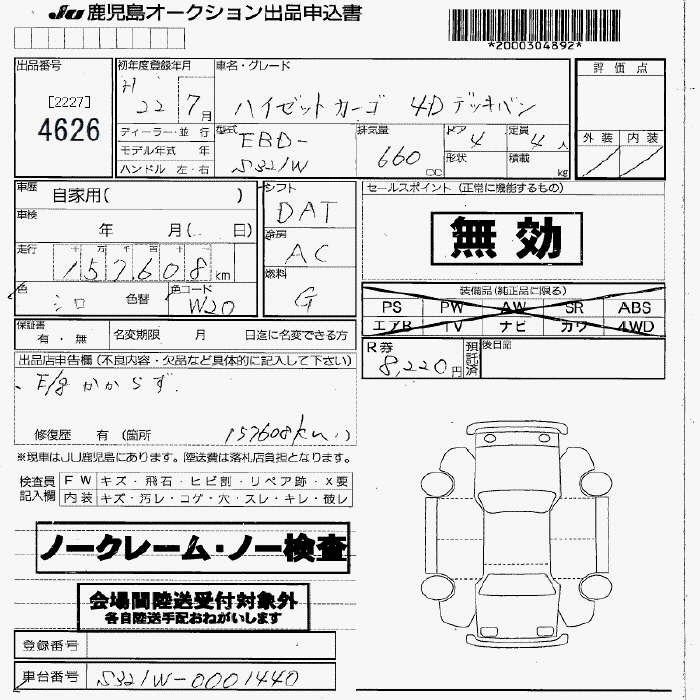 JU 鹿児島オークション出品申込書
*2000304892*
出品番号
[2227]
4626
初年度登録年月
H 22 7月
ディーラー・並 行
モデル年式 年
ハンドル 左・右
車名・グレード
ハイゼットカーゴ 4D デッキバン
型式
EBD-
S321W
排気量
660 cc
ドア 4
形状
定員 4人
積載 kg
評価点
外装 内装
車歴
自家用( )
車検
年 月( 日)
走行 十 万 千 百 十
157608 km
色
シロ 色替
色コード
W20
シフト
DAT
冷房
AC
燃料
G
セールスポイント (正常に機能するもの)
無効
装備品(純正品に限る)
PS PW AW SR ABS
エアB TV ナビ カワ 4WD
保証書
有・無
名変期限 月 日迄に名変できる方
R券
8,220円
預託済
後日品
出品店申告欄(不良内容・欠品など具体的に記入して下さい)
E/g かからず.
修復歴 有 (箇所 157608km )
※現車はJU鹿児島にあります。陸送費は落札店負担となります。
検査員
記入欄
FW キズ・飛石・ヒビ割・リペア跡・X要
内装 キズ・汚レ・コゲ・穴・スレ・キレ・破レ
ノークレーム・ノー検査
会場間陸送受付対象外
各自陸送手配おねがいします
登録番号
車台番号 S321W-0001440